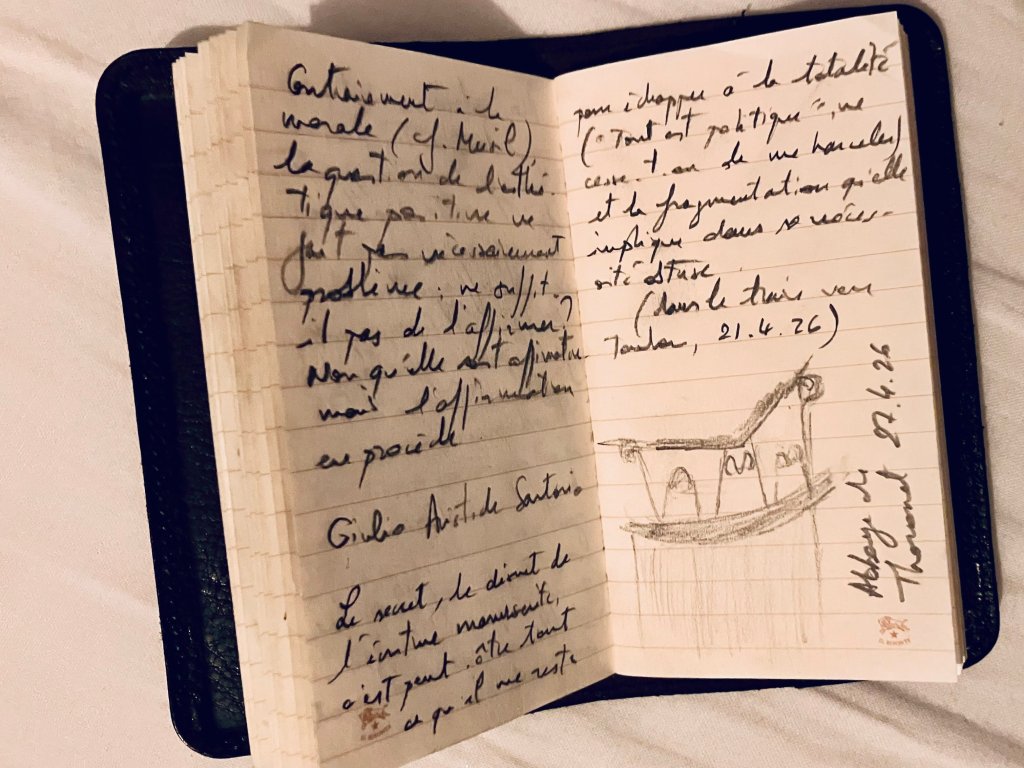 Contrairement à la
morale (cf. Musil)
la question de l'esthé-
tique positive ne
fait pas nécessairement
problème : ne suffit-
il pas de l'affirmer ?
Non qu'elle soit affirmative
mais l'affirmation
en procède
Giulio Aristide Sartorio
Le secret, le discret de
l'écriture manuscrite,
c'est peut-être tout
ce qu'il me reste
pour échapper à la totalité
("Tout est politique", ne
cesse-t-on de me harceler)
et la fragmentation qu'elle
implique dans sa néces-
sité obtuse
(dans le train vers
Toulon, 21.4.26)
Abbaye du
Thoronet 27.4.26